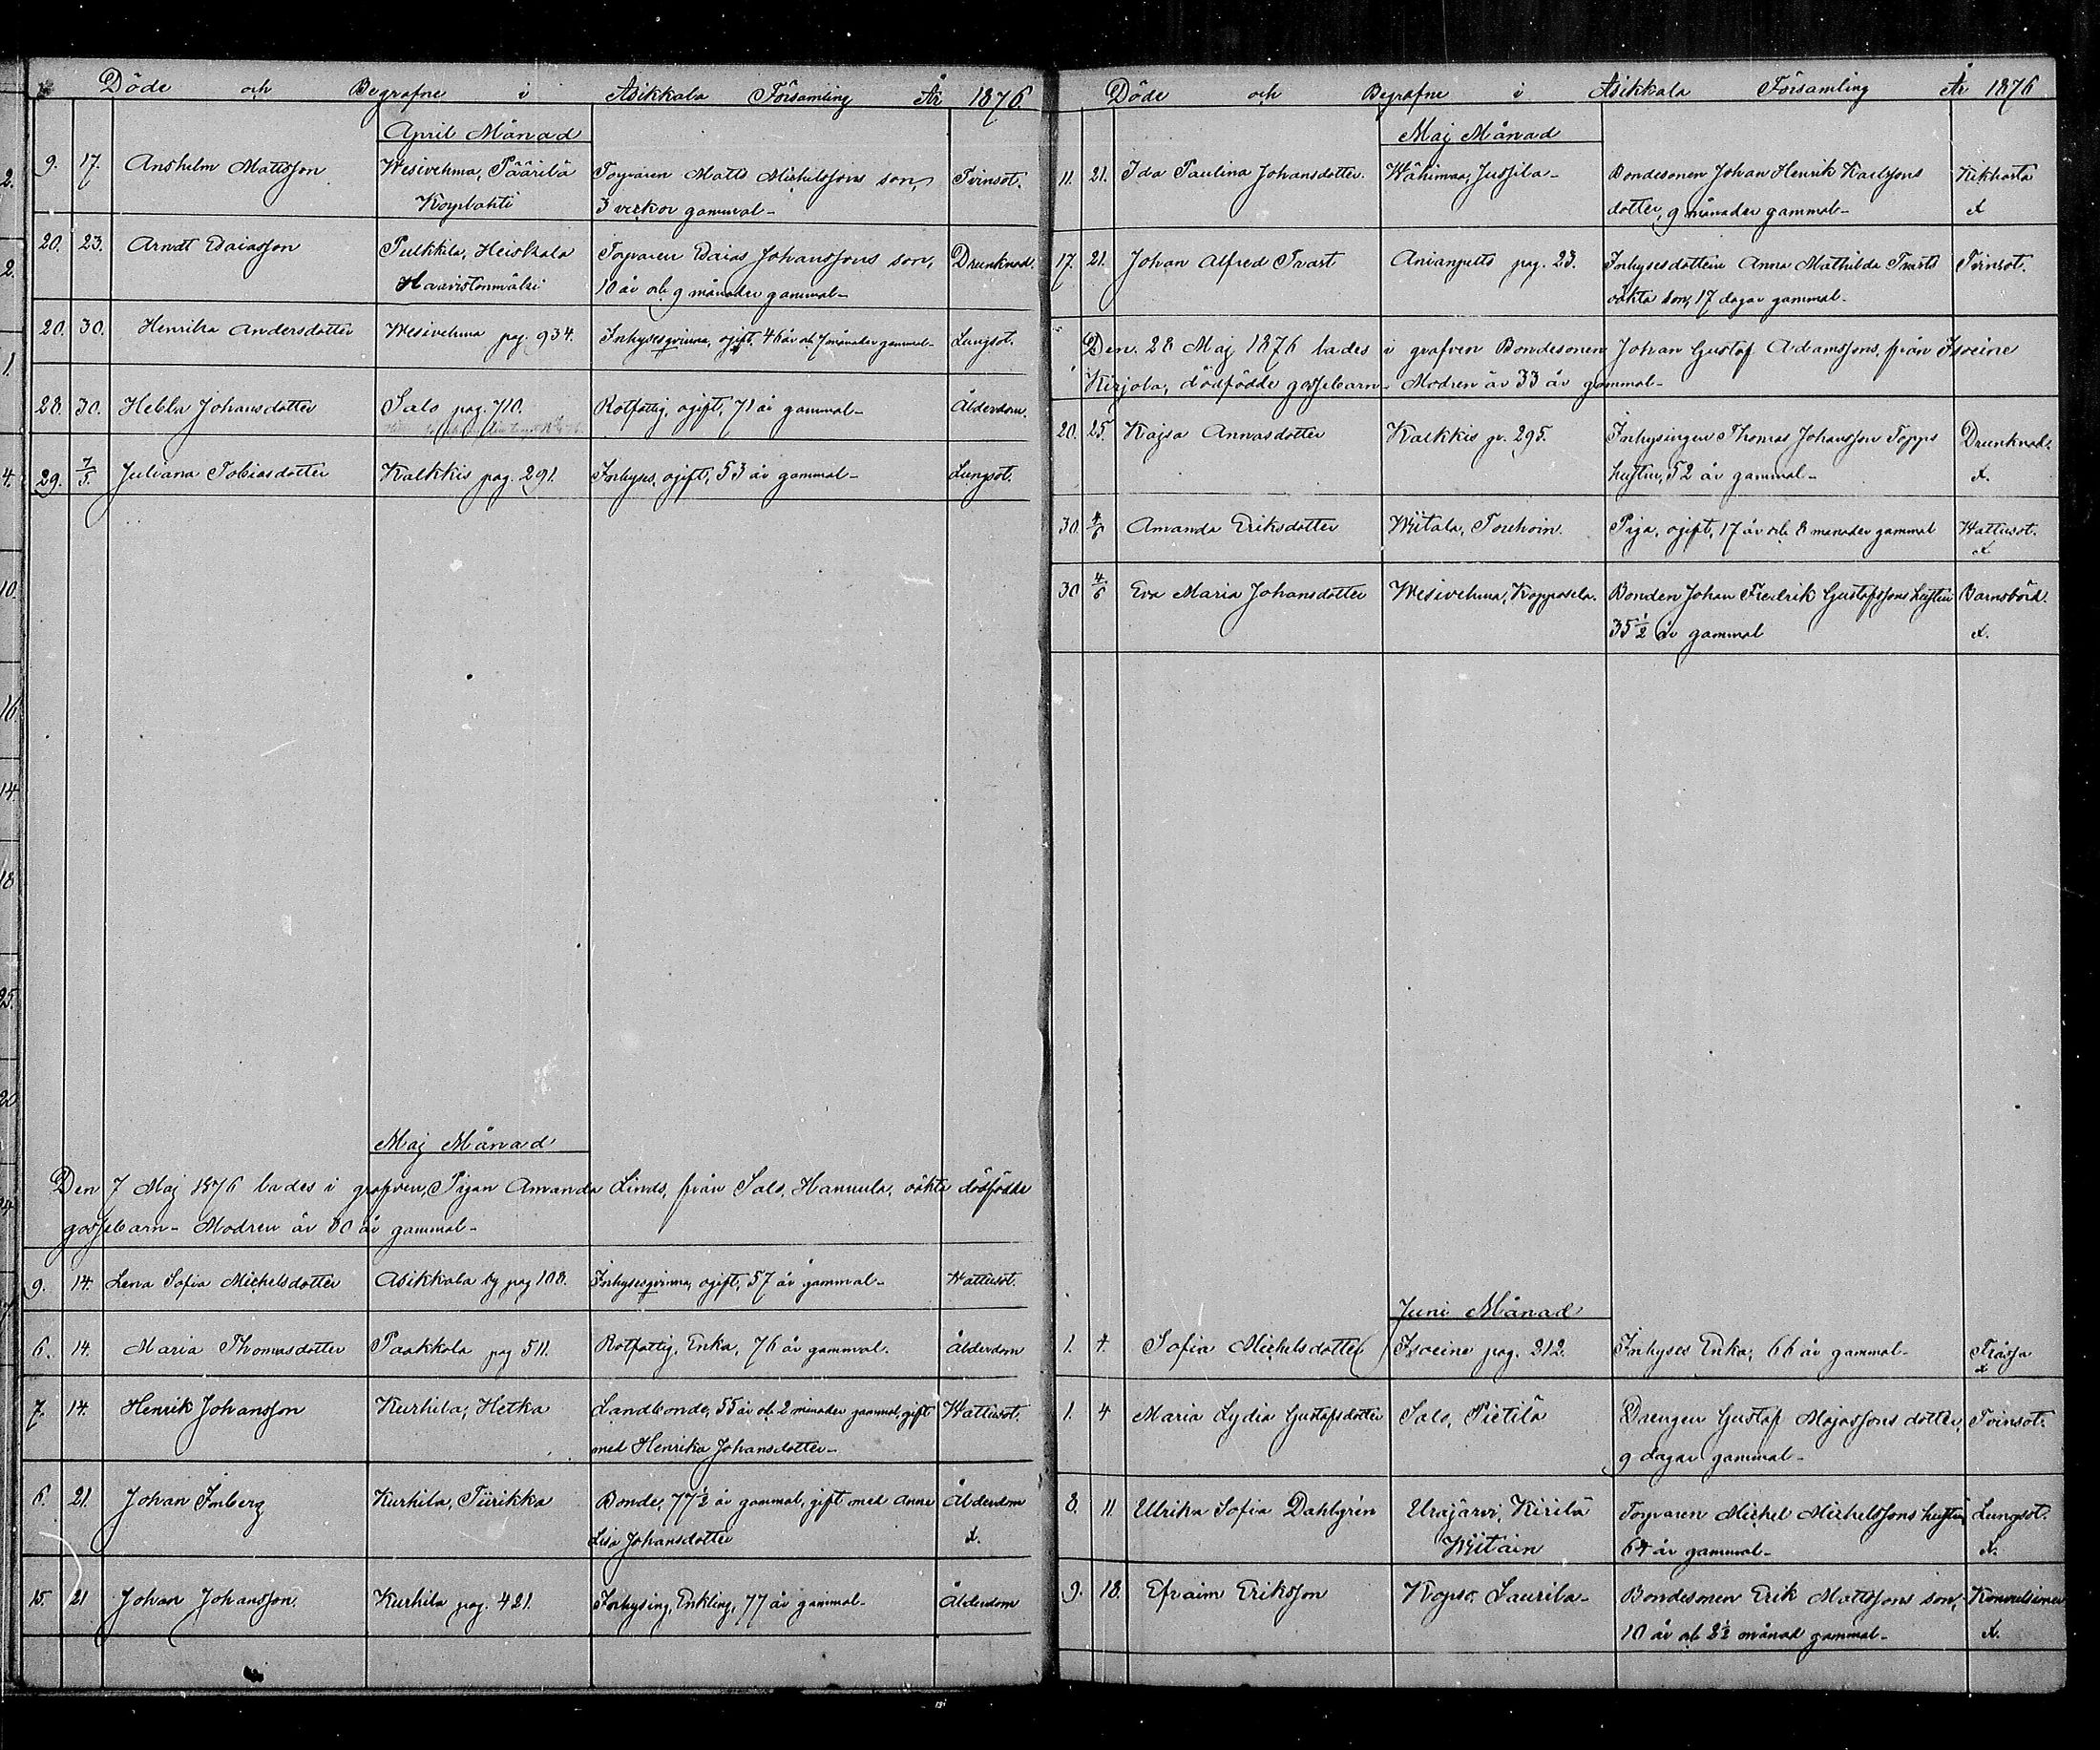 Döde och Begrafne i Asikkala Församling År 1876
April Månad
9. 17. Anshelm Mattsson Wesivehma, Päärilä Torparen Matts Michelssons son, Tvinsot.
Koyvlahti 3 veckor gammal-
20. 23. Arndt Esaiasson Pulkkila, Heiskala Torparen Esaias Johanssons son, Drunknad.
Haavistonmäki 10 år och 9 månader gammal-
20. 30. Henrika Andersdotter Wesivehma pag. 934. Inhysesqvinna, ogift, 46 år och 7 månader gammal- Lungsot.
28. 30. Hebla Johansdotter Salo pag. 710. Rotfattig, ogift, 71 år gammal- Ålderdom.
29. 7/5. Juliana Tobiasdotter Kalkkis pag. 291. Inhyses, ogift, 53 år gammal- Lungsot.
Maj Månad
Den 7 Maj 1876 lades i grafven, Pigan Amanda Linds, från Salo, Hannula, oäkta dödfödde
gossebarn- Modren är 30 år gammal-
9. 14. Lena Sofia Michelsdotter Asikkala by pag 108. Inhysesqvinna, ogift, 57 år gammal- Wattusot.
6. 14. Maria Thomasdotter Paakkola pag 511. Rotfattig, Enka, 76 år gammal. Ålderdom
7. 14. Henrik Johansson Kurhila, Hetka Landbonde, 55 år och 2 månader gammal, gift Wattusot.
med Henrika Johansdotter-
6. 21. Johan Imberg Kurhila, Tiirikka Bonde, 77 1/2 år gammal, gift med Anna Ålderdom
Lisa Johansdotter x.
15. 21 Johan Johansson Kurhila pag. 421. Inhysing, Enkling, 77 år gammal- Ålderdom
Döde och Begrafne i Asikkala Församling År 1876
Maj Månad
11. 21. Ida Paulina Johansdotter. Wähimaa, Jussila- Bondesonen Johan Henrik Karlssons Kikhosta
dotter, 9 månader gammal- x
17. 21. Johan Alfred Trast Anianpelto pag. 23. Inhysesdottern Anna Mathilda Trasts Tvinsot.
oäkta son, 17 dagar gammal-
Den 28 Maj 1876 lades i grafven Bondesonen Johan Gustaf Adamssons, från Isoeine
Kirjola, dödfödde gossebarn- Modren är 33 år gammal-
20. 25. Kajsa Annasdotter Kalkkis pr. 295. Inhysingen Thomas Johansson Topps Drunknad.
hustru, 52 år gammal- x.
30. 4/6 Amanda Eriksdotter Wiitala, Pouhoin. Piga, ogift, 17 år och 8 månader gammal Wattusot.
x
30 4/6 Eva Maria Johansdotter Wesivehma, Koppasela. Bonden Johan Fredrik Gustafssons hustru Barnsbörd.
35 1/2 år gammal x.
Juni Månad
1. 4. Sofia Michelsdotter Isoeine pag. 212. Inhyses Enka, 66 år gammal- Fråssa
x
1. 4 Maria Lydia Gustafsdotter Salo, Pietilä Drengen Gustaf Majassons dotter, Tvinsot.
9 dagar gammal-
8. 11 Ulrika Sofia Dahlgrén Urajärvi, Kirilä Torparen Michel Michelssons hustru, Lungsot.
Wiitain 64 år gammal- x.
9. 18. Efraim Eriksson Kopso, Laurila- Bondesonen Erik Mattssons son, Konvulsioner
10 år och 8 1/2 månad gammal- x.